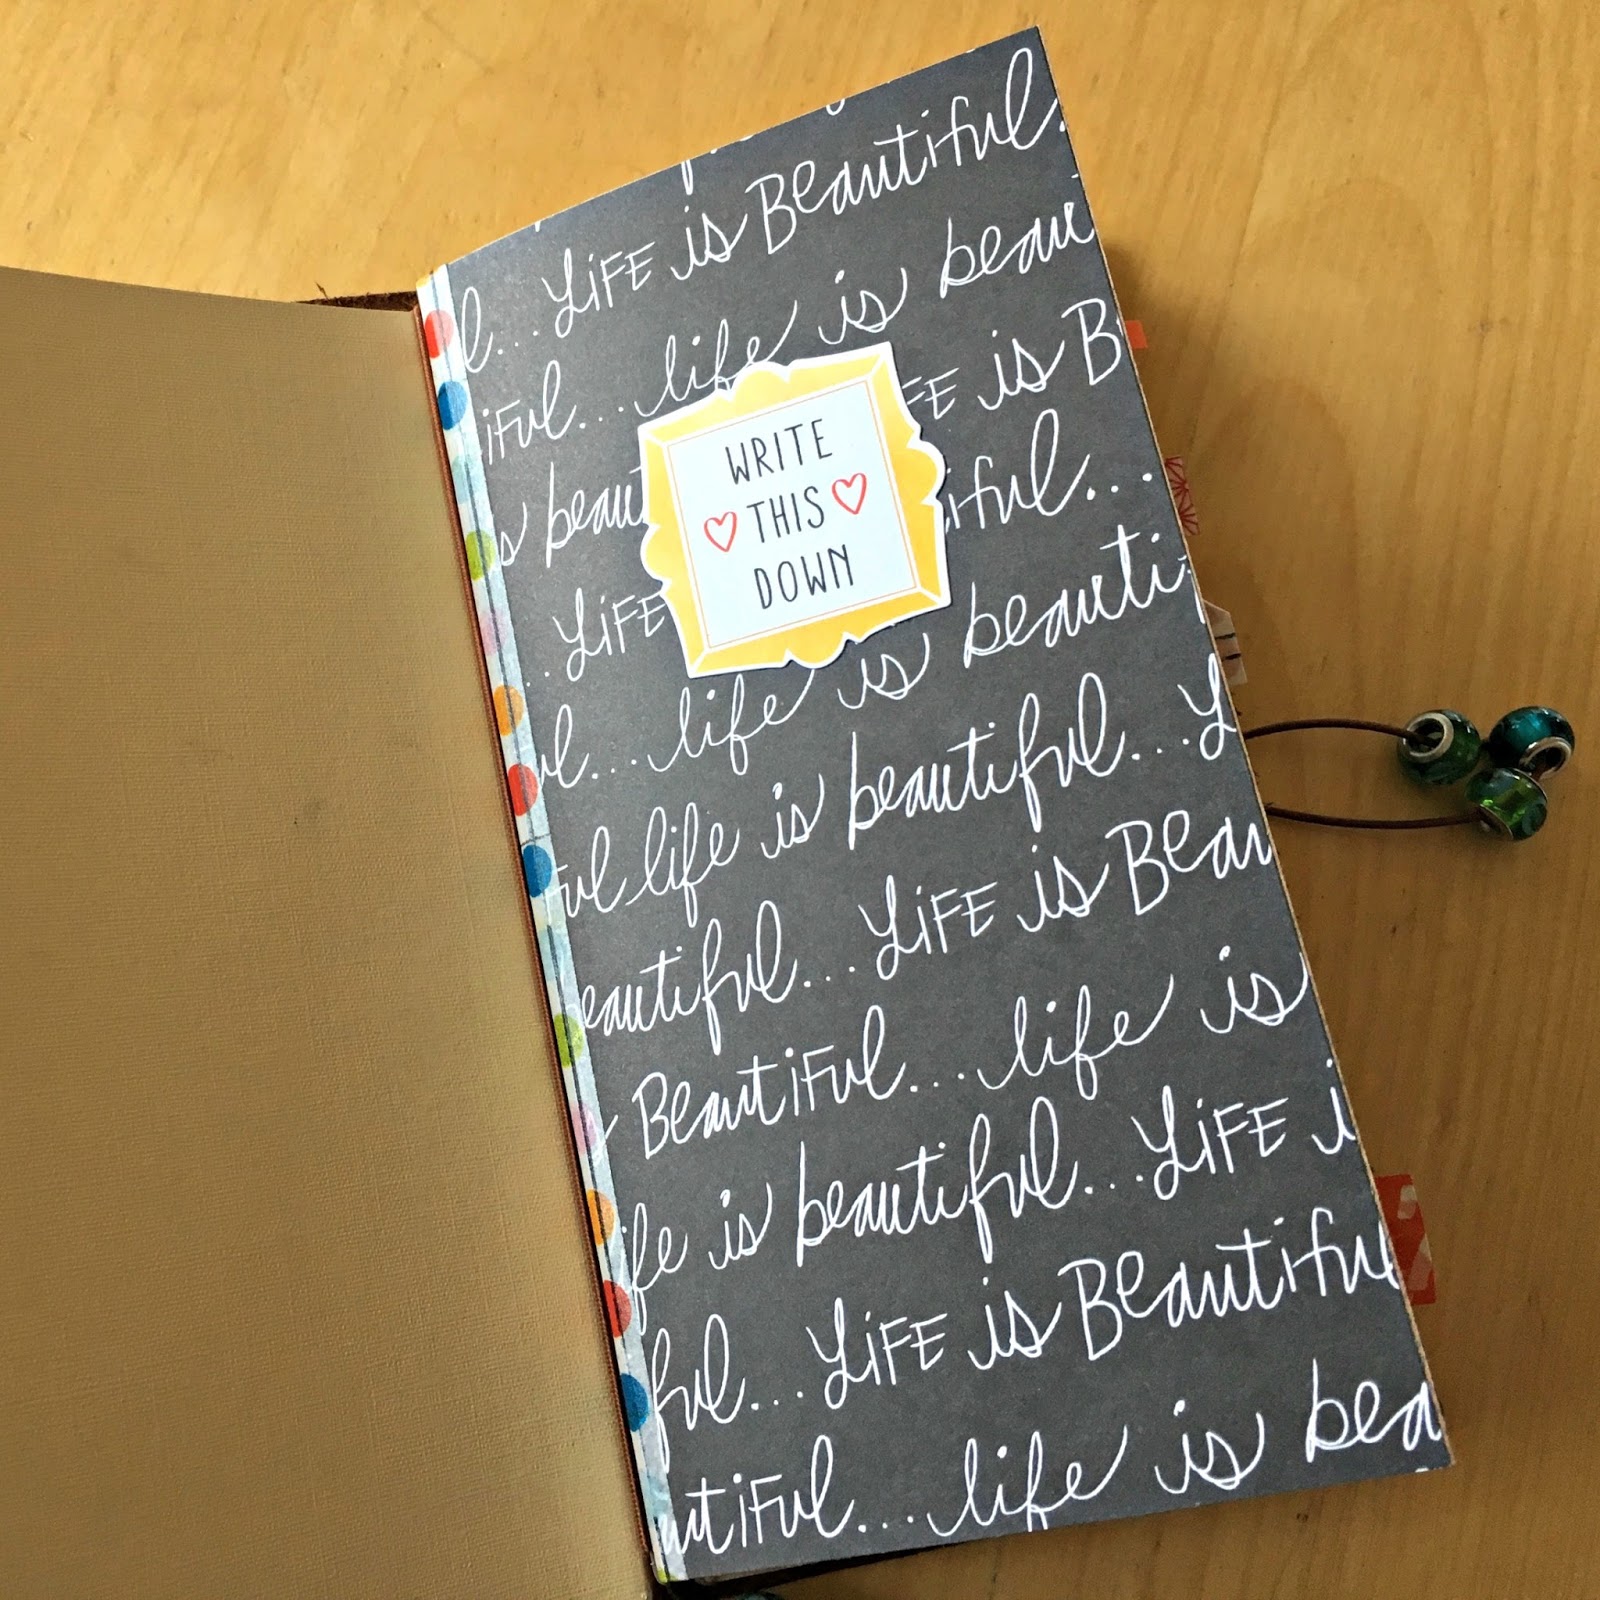 l... Life is Beautiful.
iful... life is beau
s beau
fe is B
WRITE
THIS
DOWN
.. Life
iful...
ul... life is beauti
ful life is beautiful... L
eautiful... Life is Beau
Beautiful... life is
ife is beautiful... Life i
ful... Life is Beautiful
utiful... life is bea